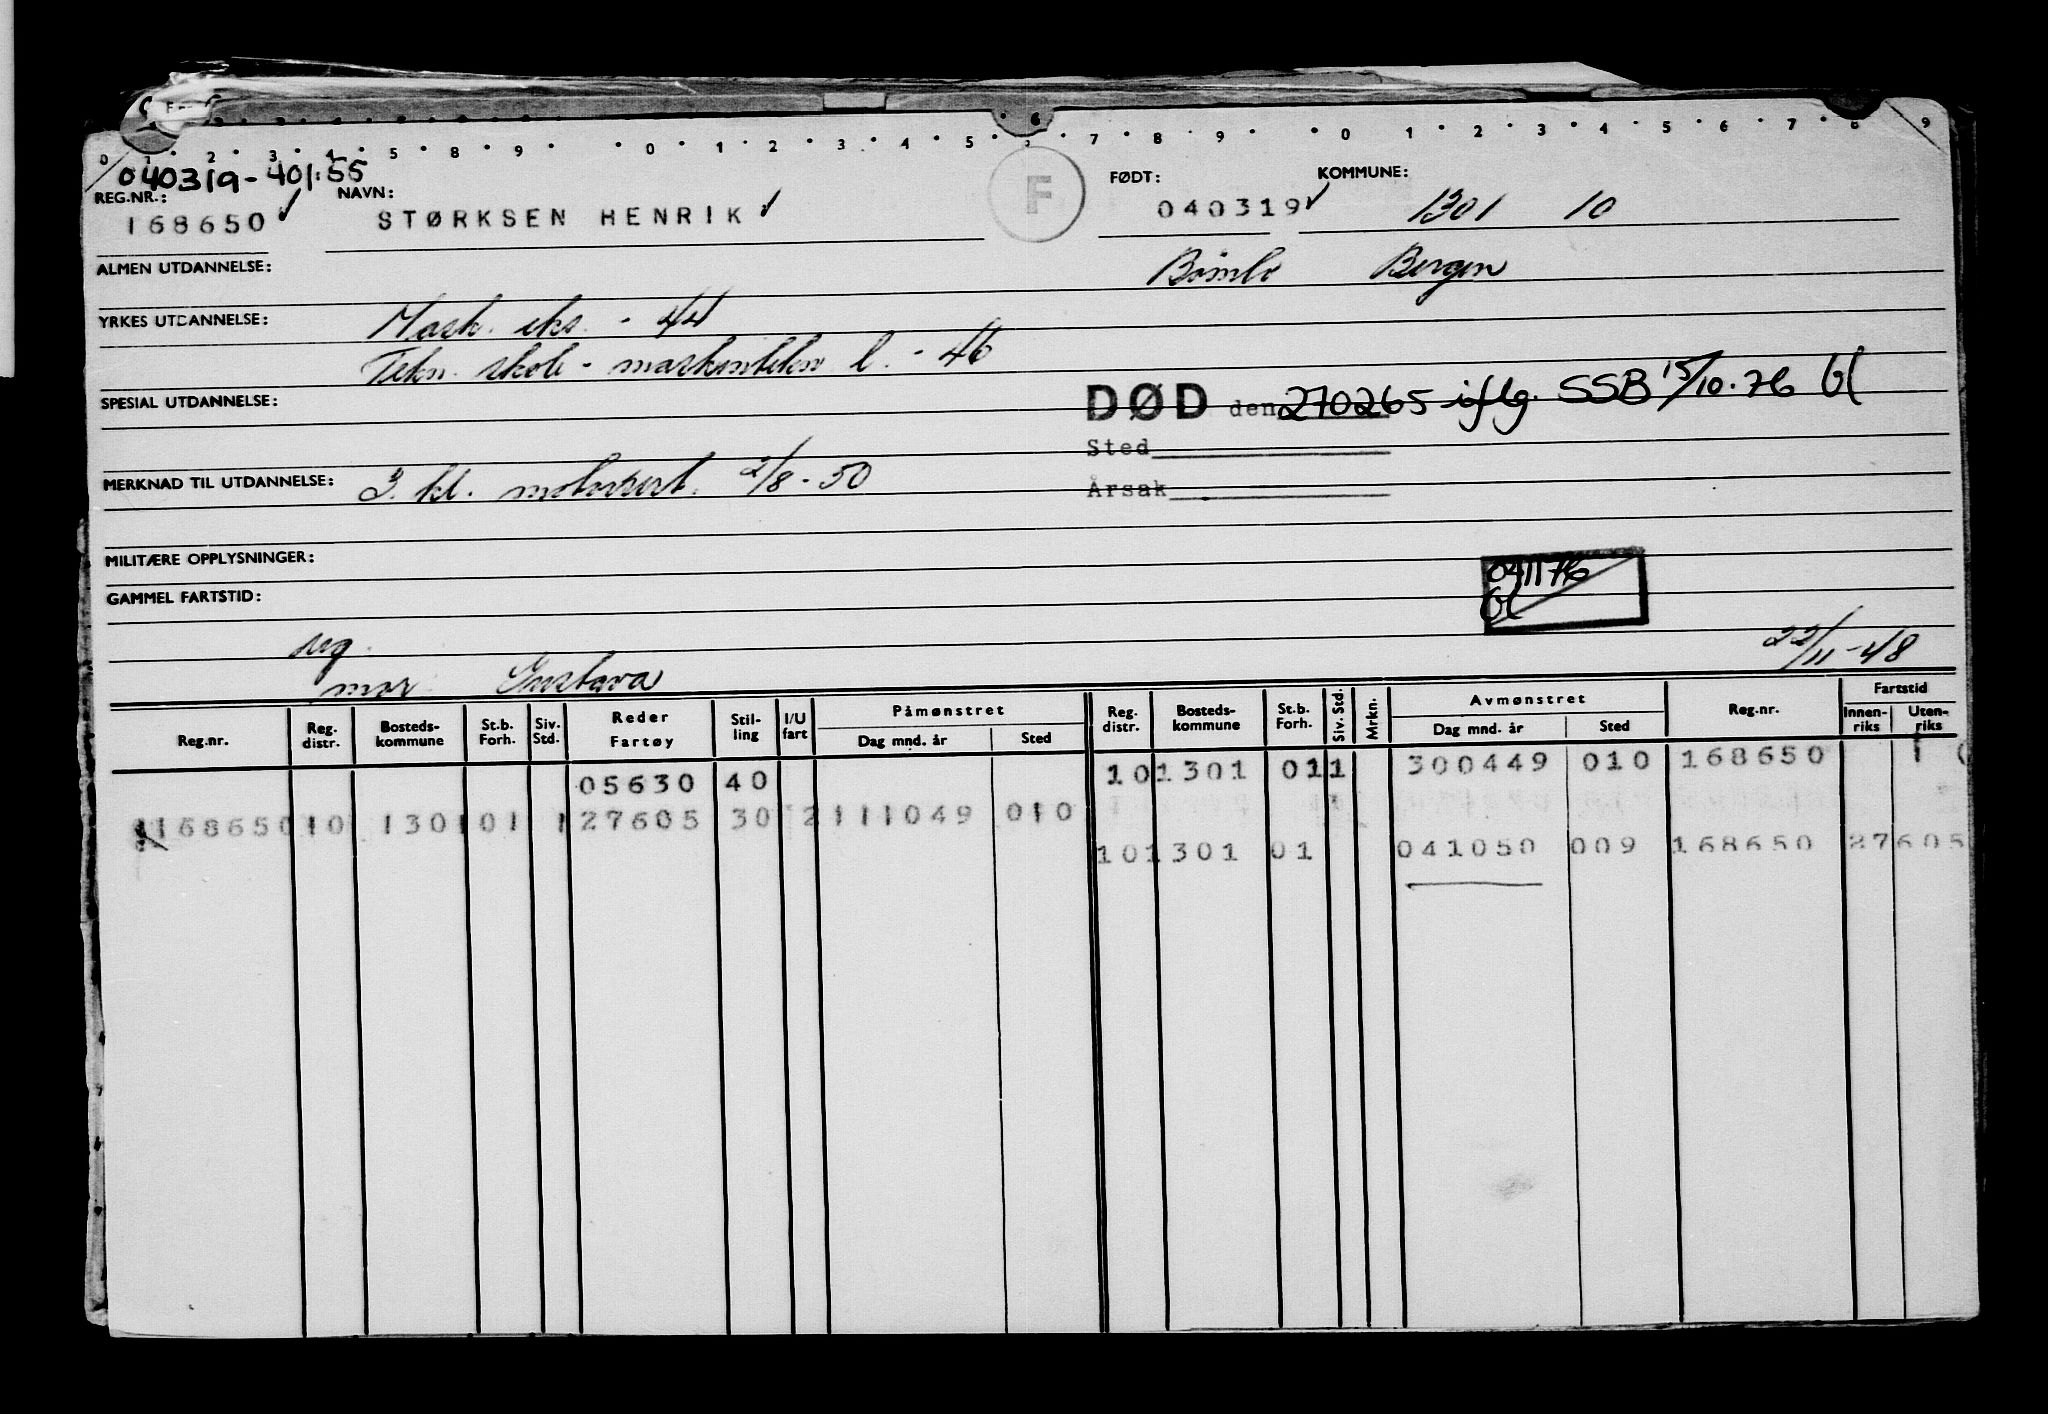 0 1 2 3 4 5 8 9 0 1 2 3 4 5 6 7 8 9 0 1 2 3 4 5 6 7 8 9
040319-401.55
REG.NR.: NAVN: F FØDT: KOMMUNE:
168650 STØRKSEN HENRIK 040319 1301 10
ALMEN UTDANNELSE: Bømlo Bergen
YRKES UTDANNELSE: Mask. eks. - 44
Tekn. skole - maskintekn l. - 46
SPESIAL UTDANNELSE: DØD den 270265 iflg. SSB 15/10.76
Sted
MERKNAD TIL UTDANNELSE: 3. kl. motorsert. 2/8-50 Årsak
MILITÆRE OPPLYSNINGER:
041176
GAMMEL FARTSTID:
reg. 22/11-48
mor Gustava
Reg.nr. Reg. distr. Bosteds-kommune St.b. Forh. Siv. Std. Reder Fartøy Stil-ling I/U fart Påmønstret Dag mnd. år Sted Reg. distr. Bosteds-kommune St.b. Forh. Siv. Std. Mrkn. Avmønstret Dag mnd. år Sted Reg.nr. Fartstid Innen-riks Uten-riks
05630 40 10 1301 01 1 300449 010 168650 1 0
168650 10 1301 01 1 27605 30 2 111049 010
10 1301 01 041050 009 168650 27605